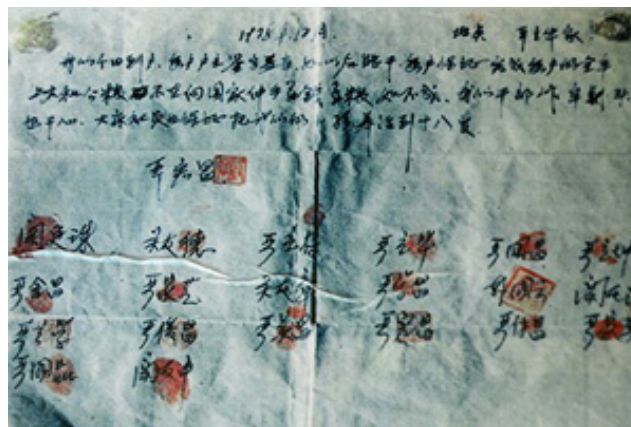 1978.12月 地点 严立华家
我们分田到户，每户户主签字盖章，如以后能干，每户保证完成每户的全年
上交和公粮，不在向国家伸手要钱要粮，如不成，我们干部作牢刹头
也干心，大家社员也保证把我们的小孩养活到十八岁。
严宏昌
关廷珠 关友德 严立符 严立华 严国昌 严立坤
严金昌 严家芝 关友章 严学昌 韩国云 关友江
严立学 严俊昌 严美昌 严宏昌 严付昌
严国品 关友申